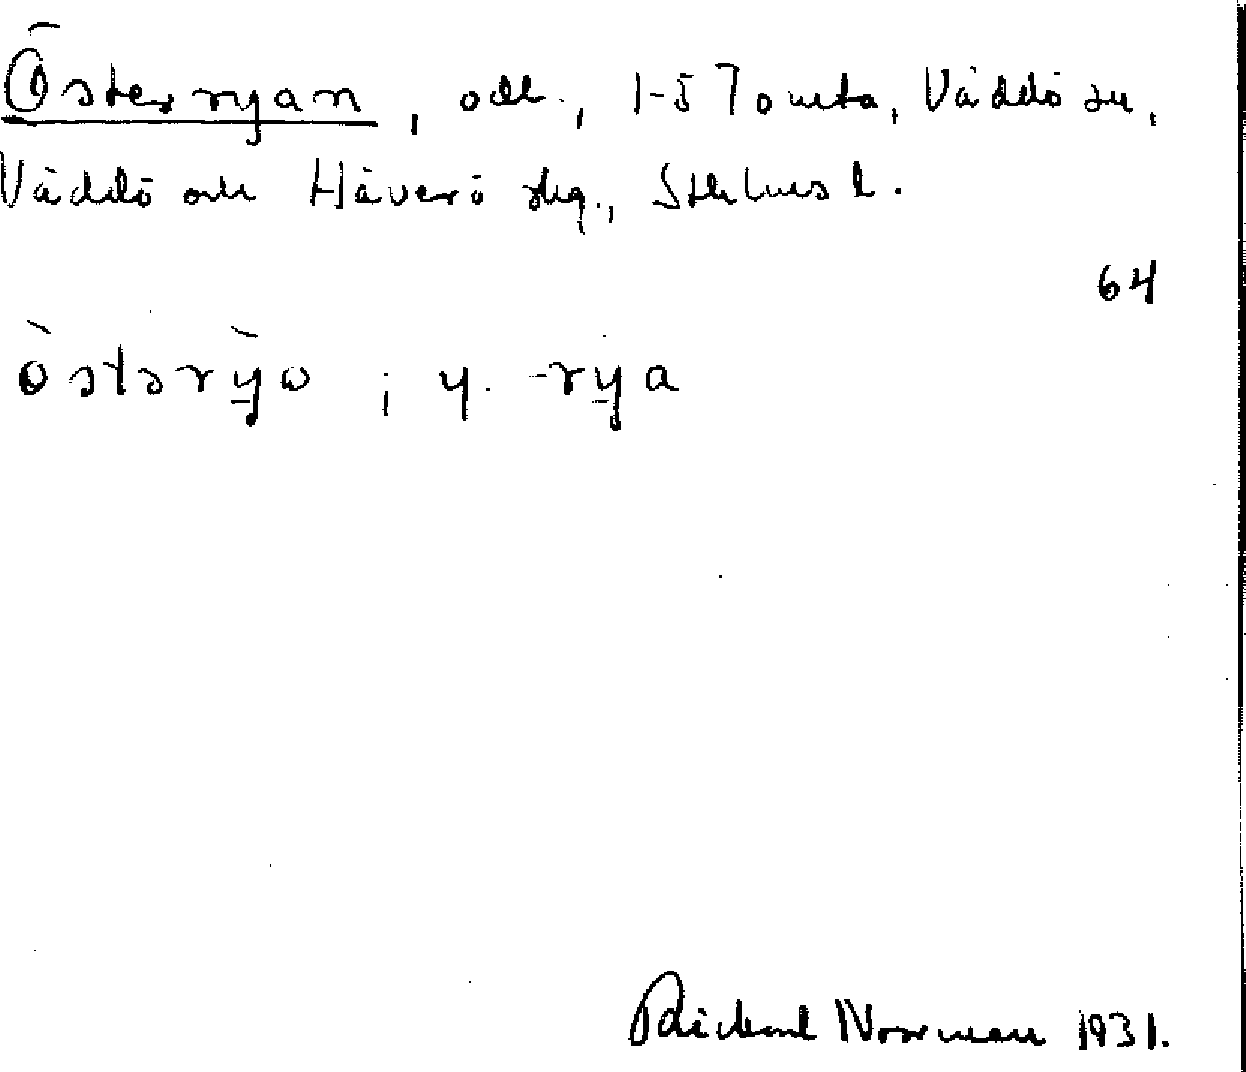 Österryan, odl., 1-5 Tomta, Väddö sn,
Väddö och Häverö skg., Sthlms l.
64
östərỳo ; y. -rya
Rickard Norrman 1931.